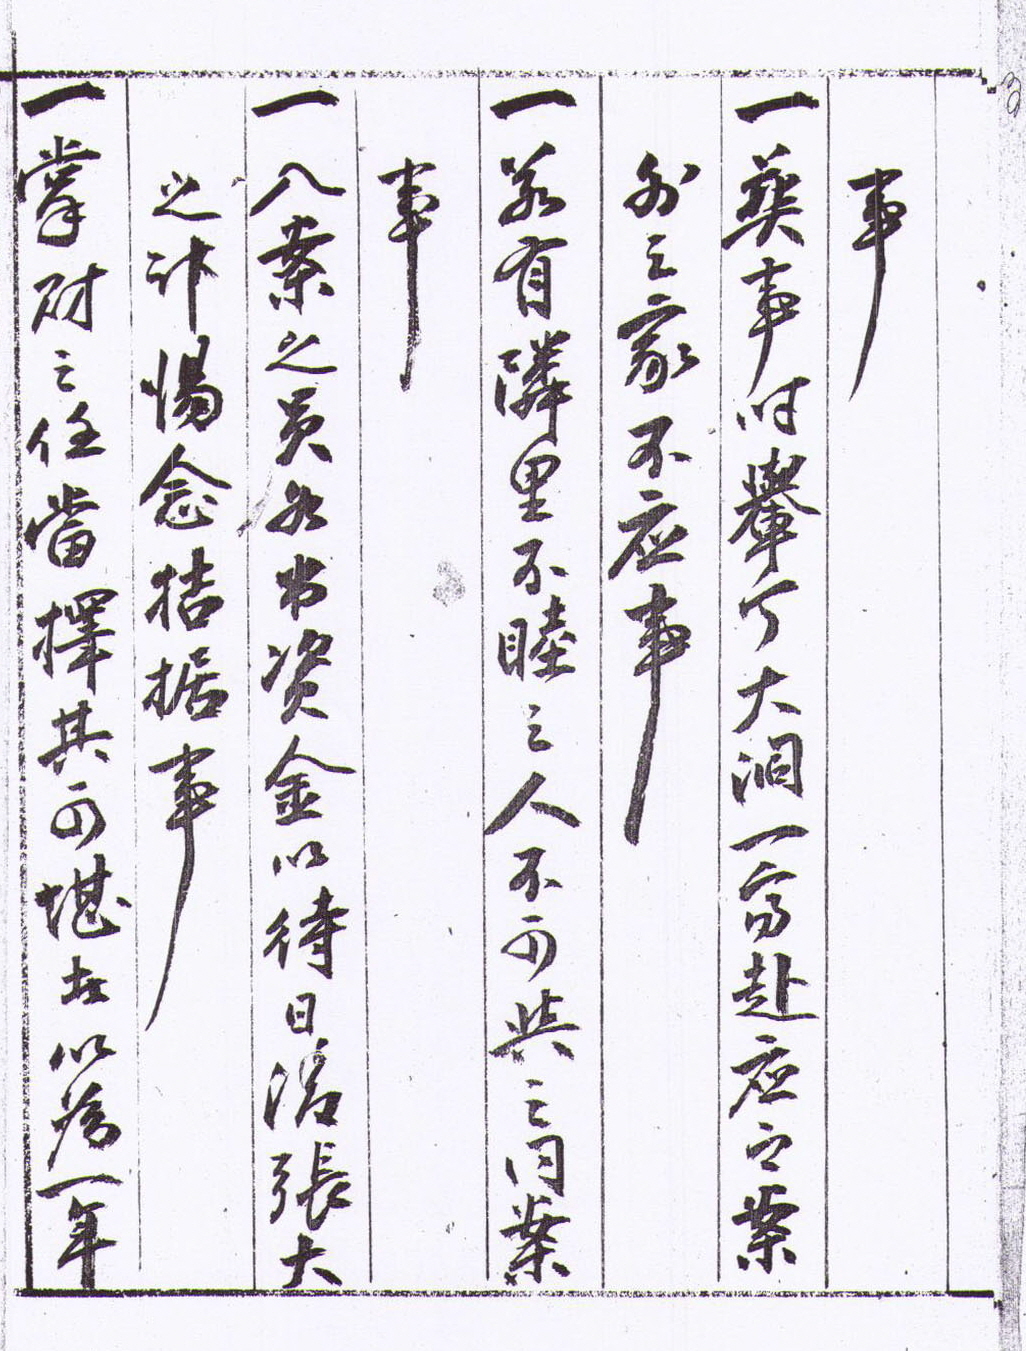 事
一葬事时轝丁大洞一齊赴应而業
外之家不应事
一若有隣里不睦之人不可與之同業
事
一入業之員各出資金以待日後張大
之計惕念拮据事
一掌財之任當擇其可堪者以爲一年